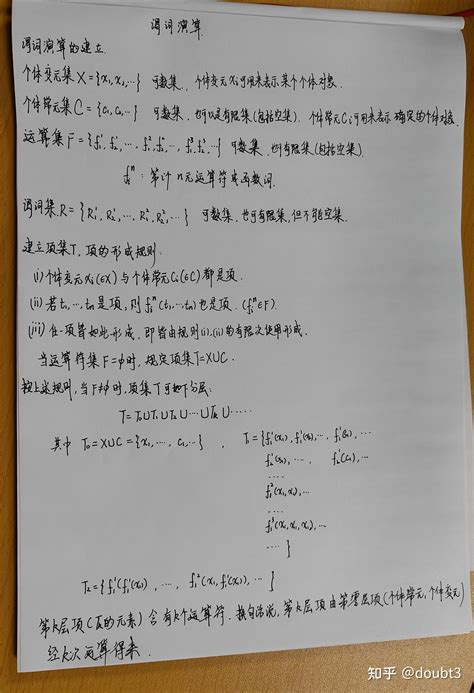 谓词演算
谓词演算的建立
个体变元集 X={x₁,x₂,…} 可数集, 个体变元 xᵢ 可用来表示某个个体对象.
个体常元集 C={c₁,c₂,…} 可数集, 也可以是有限集(包括空集). 个体常元 cᵢ 可用来表示确定的个体对象.
运算集 F={f₁¹,f₂¹,…,f₁²,f₂²,…,f₁³,f₂³,…} 可数集, 也可有限集(包括空集).
fᵢⁿ:第i个n元运算符或函数词.
谓词集 R={R₁¹,R₂¹,…,R₁²,R₂²,…} 可数集, 也可有限集, 但不可能空集.
建立项集T, 项的形成规则:
(i) 个体变元 xᵢ(∈X) 与个体常元 cᵢ(∈C) 都是项.
(ii) 若 t₁,…,tₙ 是项, 则 fᵢⁿ(t₁,…,tₙ) 也是项. (fᵢⁿ∈F).
(iii) 任一项皆如此形成, 即皆由规则(i),(ii)的有限次使用形成.
当运算符集 F=φ时, 规定项集T=X∪C.
按上述规则, 当F≠φ时, 项集T可如下分层:
T=T₀∪T₁∪T₂∪…∪Tₖ∪……
其中 T₀=X∪C={x₁,…, c₁,…}, T₁={f₁¹(x₁),f₁¹(x₂),…, f₁¹(c₁),…
f₂¹(x₁),…, f₂¹(c₁),…
……
f₁²(x₁,x₁),…
……
f₁³(x₁,x₁,x₁),…
…… }
T₂={f₁¹(f₁¹(x₁)),…, f₁²(x₁,f₁¹(x₁)),… }
第k层项(Tₖ的元素)含有k个运算符. 换句话说, 第k层项由第零层项(个体常元,个体变元)
经k次运算得来.
知乎 @doubt3